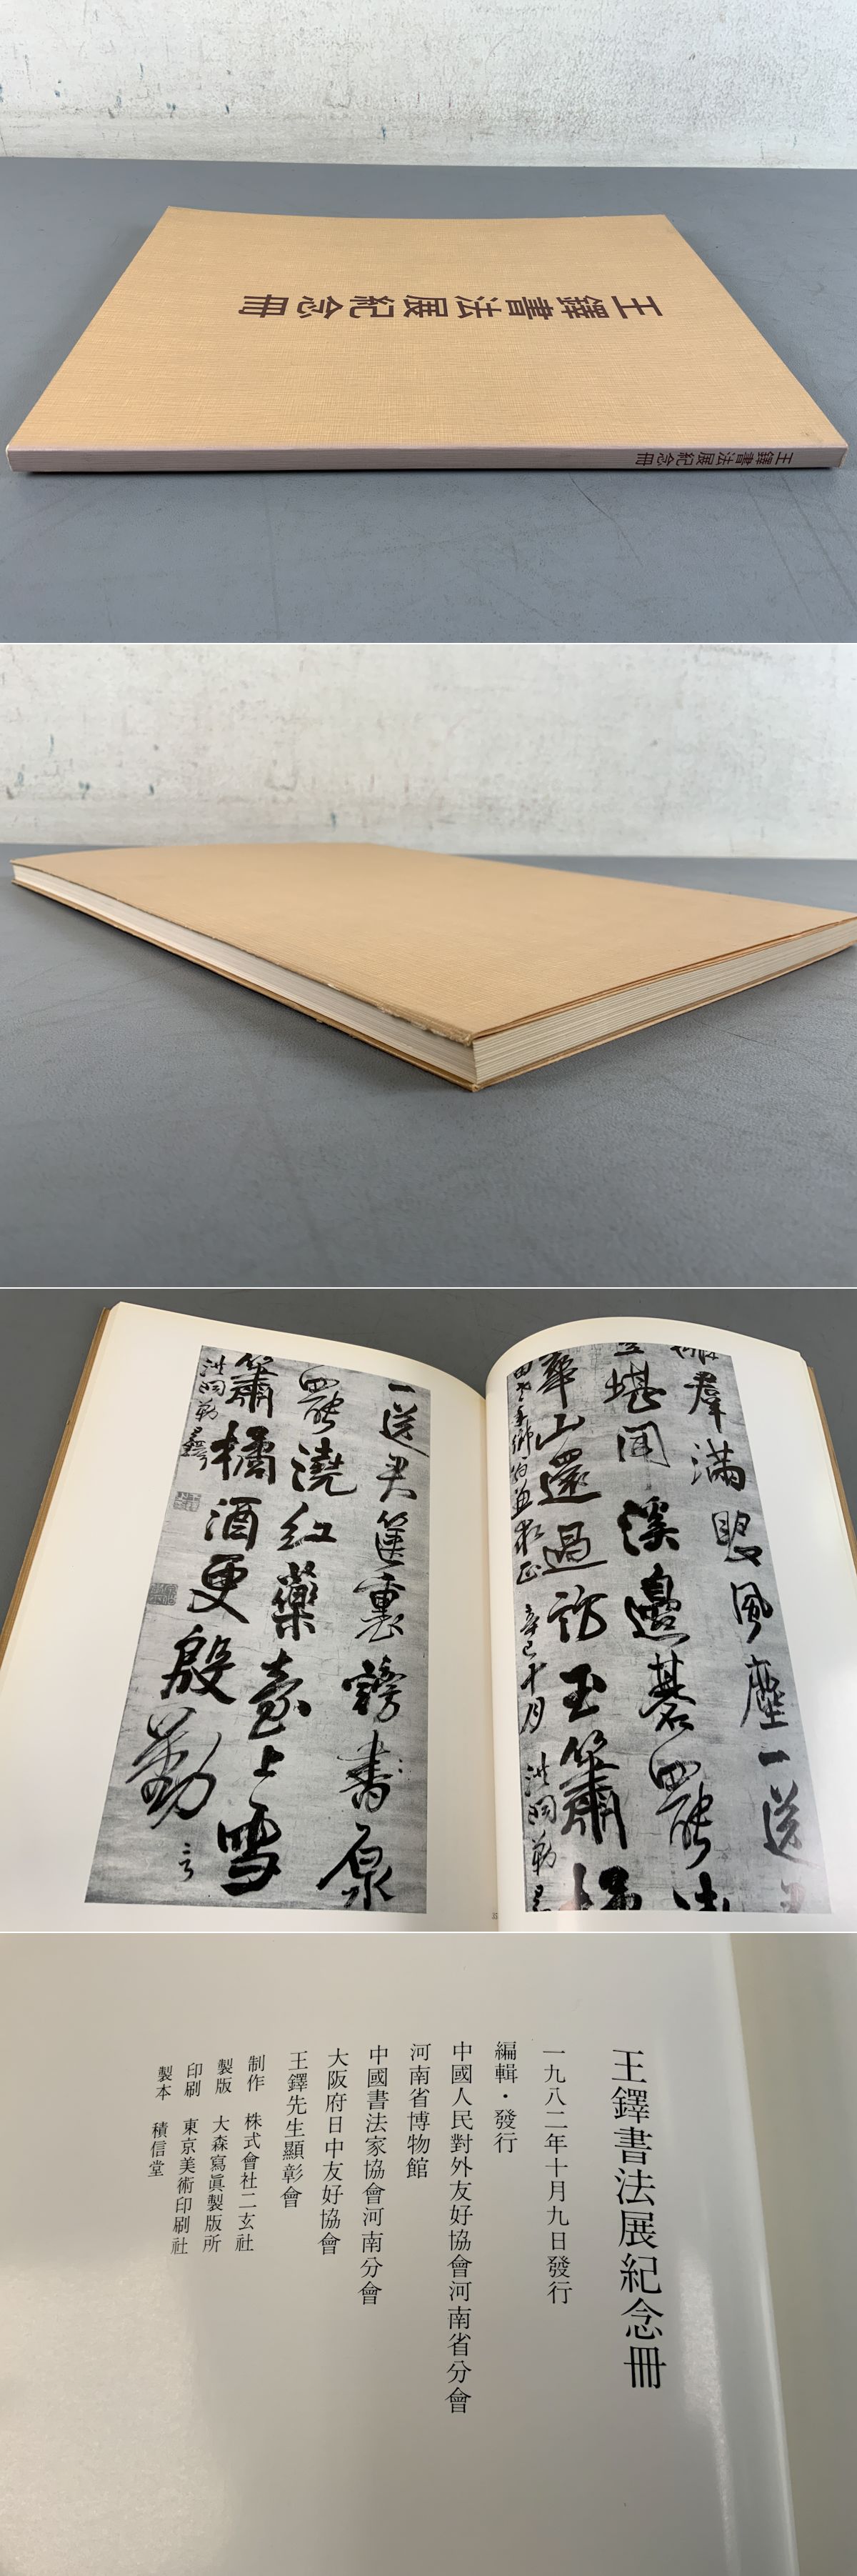 王鐸書法展紀念冊
王鐸書法展紀念冊
群滿眼風塵一送
堪聞溪邊碁罷
華山還過訪玉簫
辛巳十月 洪洞勒
一送君篋裏謗書原
罷澆紅藥臺上雪
簫橘酒更殷勤
洪洞勒
王鐸書法展紀念冊
一九八二年十月九日發行
編輯・發行
中國人民對外友好協會河南省分會
河南省博物館
中國書法家協會河南分會
大阪府日中友好協會
王鐸先生顯彰會
制作 株式會社二玄社
製版 大森寫眞製版所
印刷 東京美術印刷社
製本 積信堂